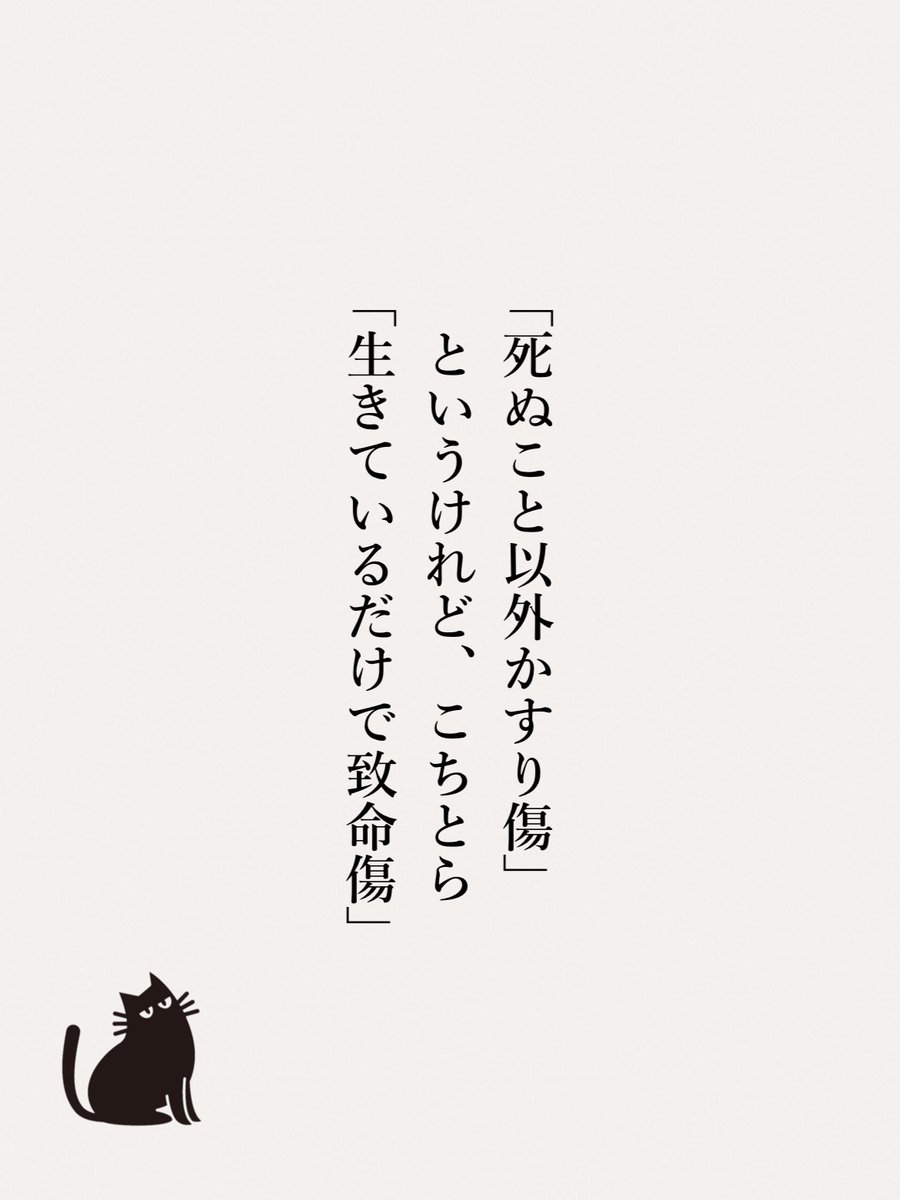 「死ぬこと以外かすり傷」
というけれど、こちとら
「生きているだけで致命傷」